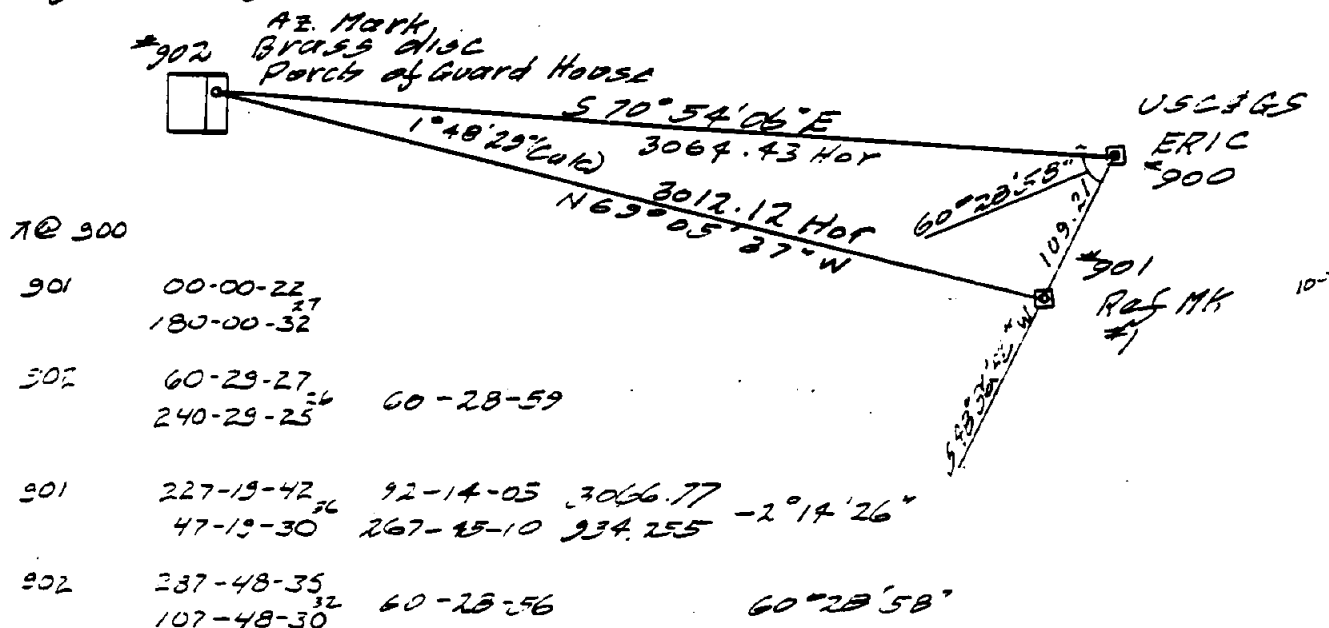 Az. Mark
#902 Brass disc
Porch of Guard House
S 70° 54' 06" E
3064.43 Hor
1° 48' 29" (Calc)
3012.12 Hor
N 69° 05' 37" W
USC&GS
ERIC
#900
60° 28' 58"
109.21
#901
Ref MK
#1
10-
⊼@ 900
901 00-00-22
27
180-00-32
902 60-29-27
26
240-29-25 60-28-59
901 227-19-42 92-14-05 3066.77
36
47-19-30 267-45-10 934.255 -2° 14' 26"
902 287-48-35
32
107-48-30 60-28-56 60° 28' 58"